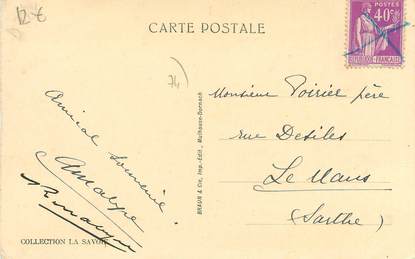 12 €
CARTE POSTALE
POSTES
40c
REPUBLIQUE FRANÇAISE
74
Monsieur Poirier père
rue Desiles
Le Mans
(Sarthe)
Amical souvenir.
BRAUN & Cie, Imp.-Edit., Mulhouse-Dornach
COLLECTION LA SAVOIE